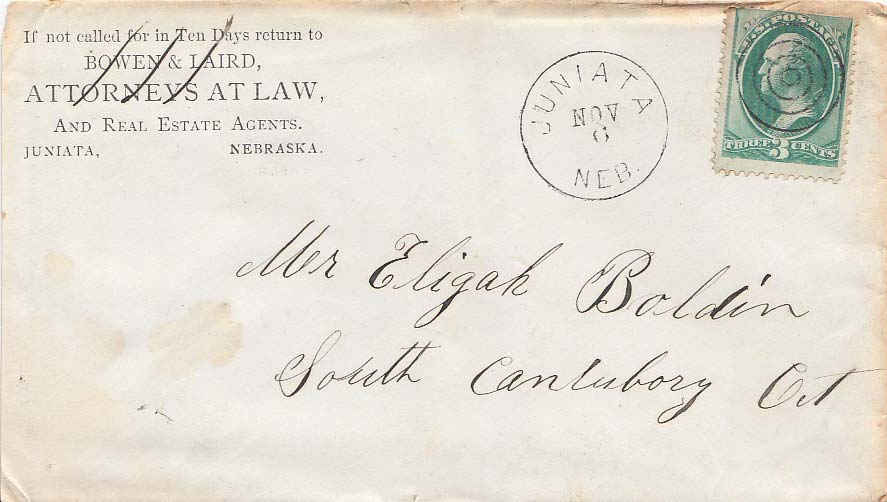 If not called for in Ten Days return to
BOWEN & LAIRD,
ATTORNEYS AT LAW,
AND REAL ESTATE AGENTS.
JUNIATA, NEBRASKA.
JUNIATA
NOV
6
NEB.
U.S. POSTAGE
THREE 3 CENTS
Mr Eligah Boldin
South Cantubory Ct